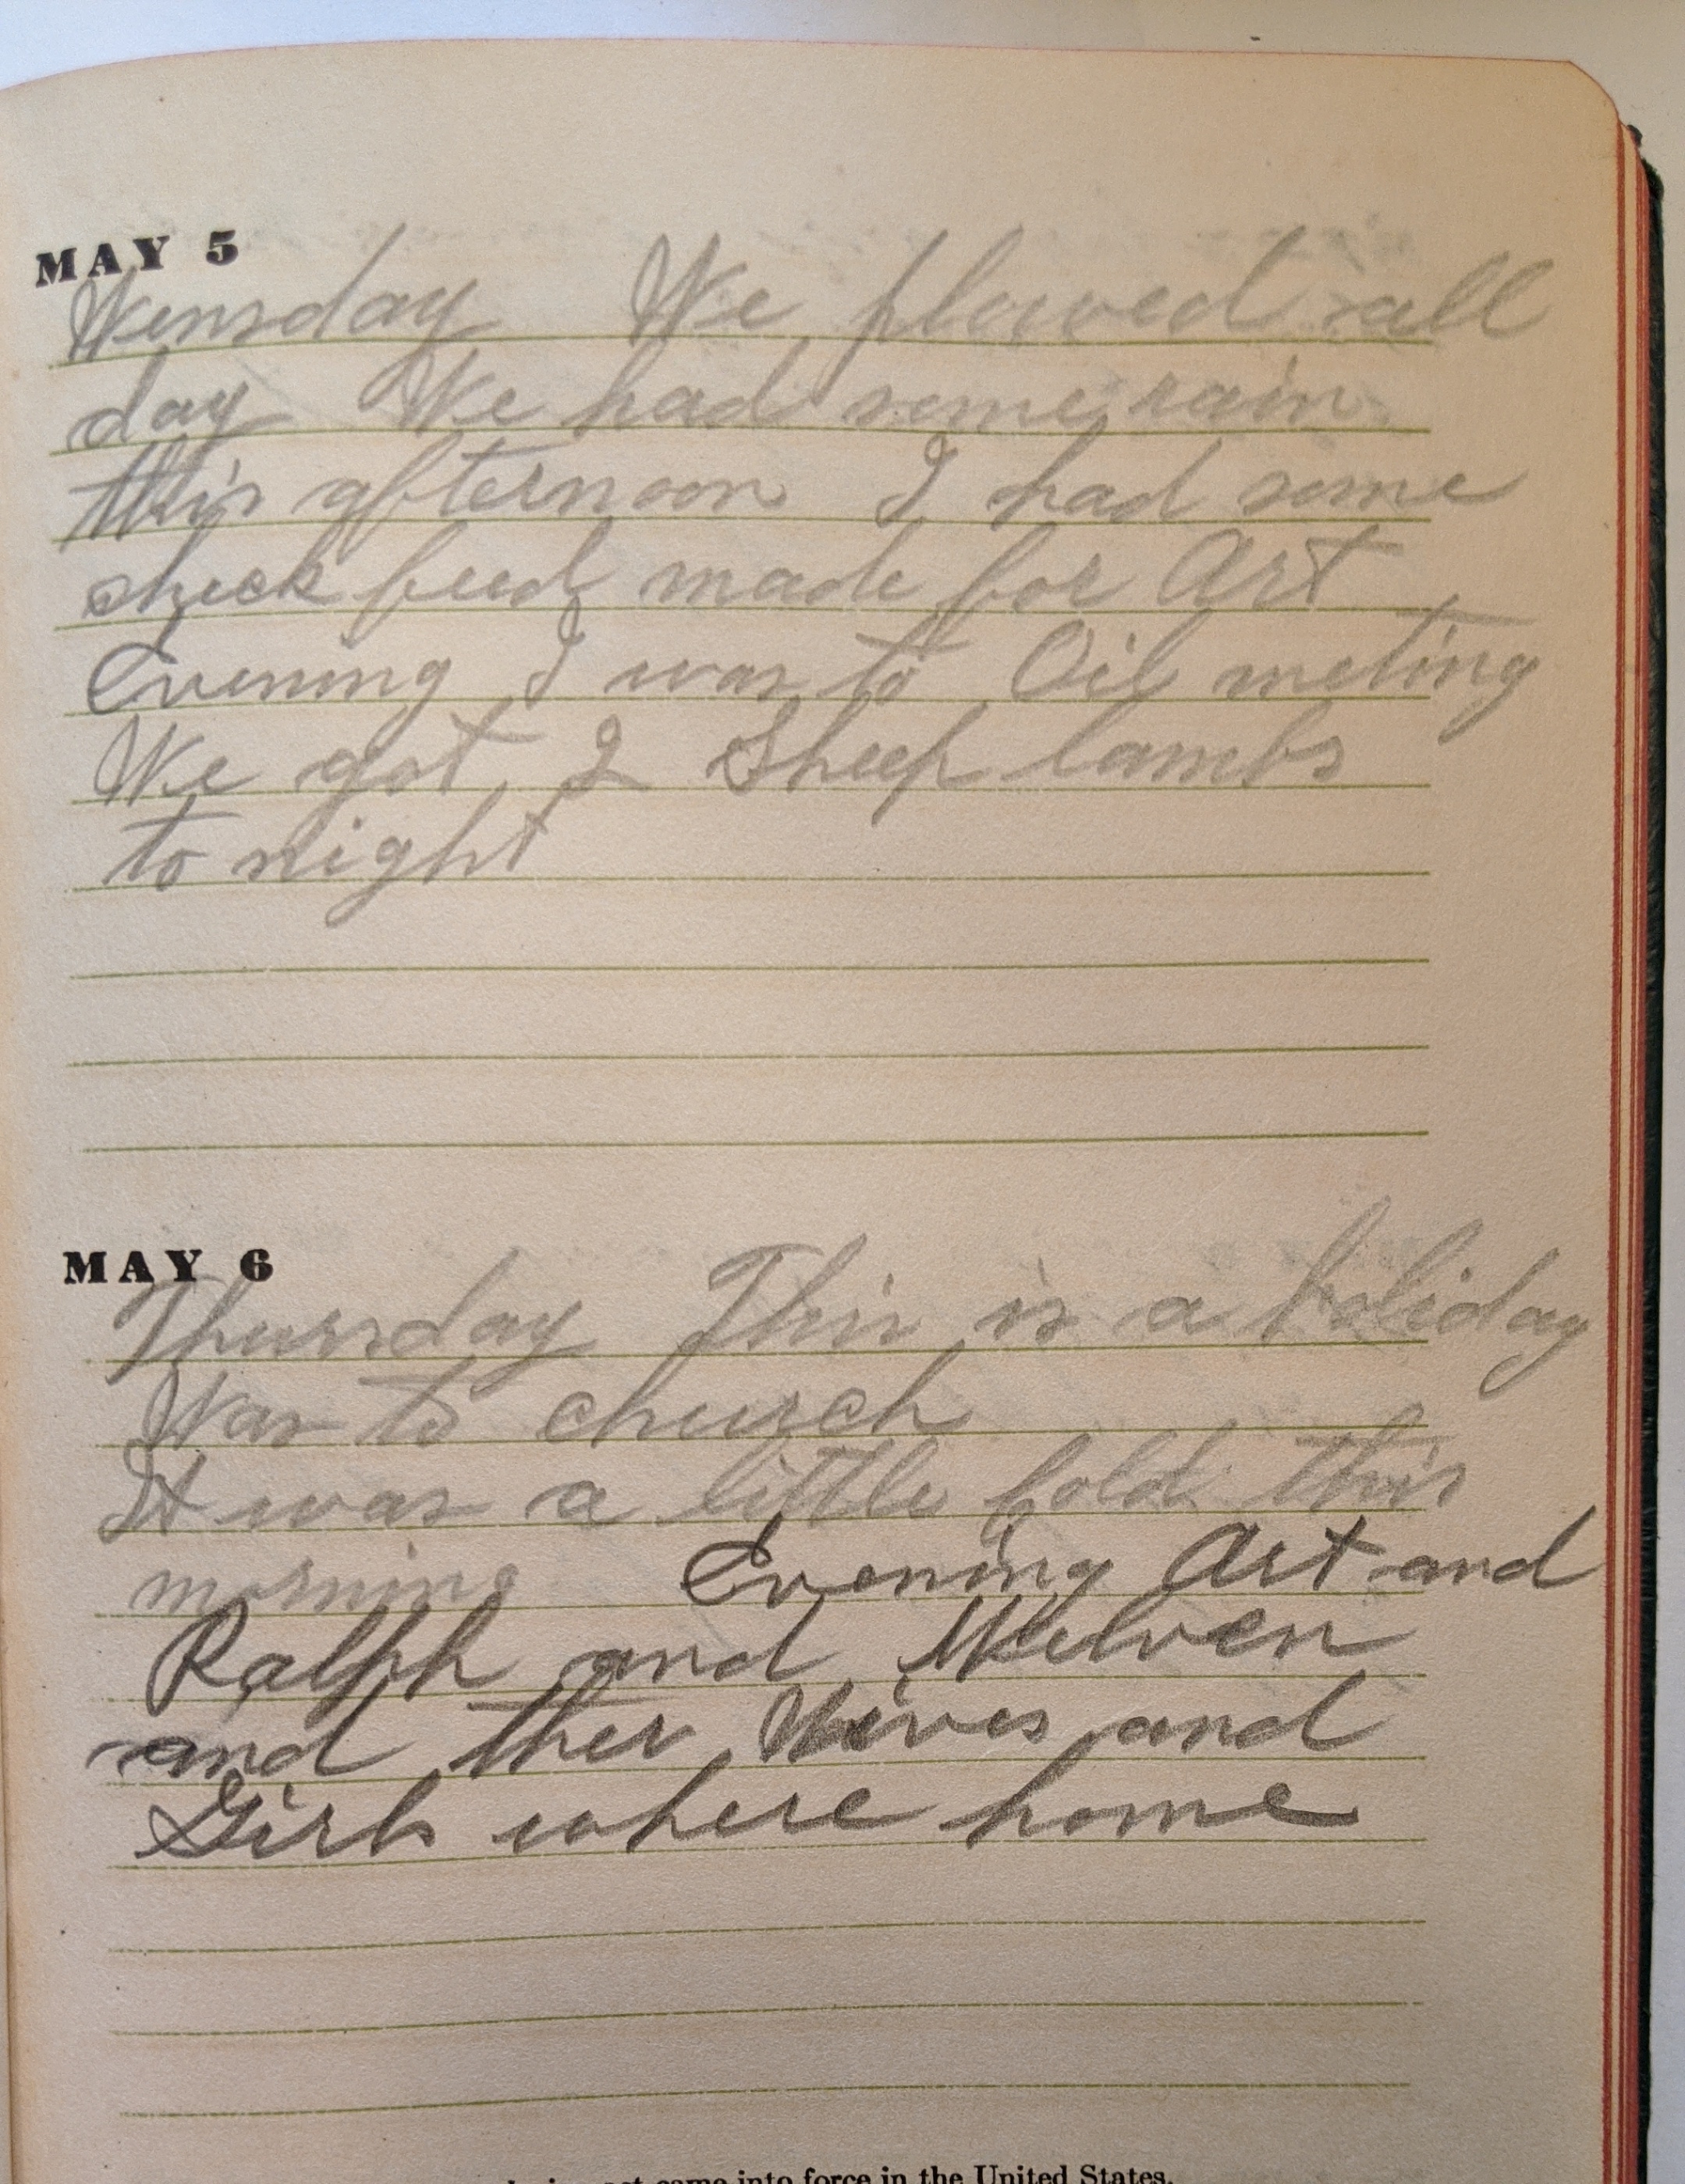 MAY 5
Wensday We plowed all
day We had some rain
this afternoon I had some
check feed made for Art
Evening I was to Oil meting
We got 2 Sheep lambs
to night
MAY 6
Thursday This is a holiday
Was to church
It was a little cold this
morning Evening Art and
Ralph and Melven
and ther Wives and
Girls where home
act came into force in the United States.